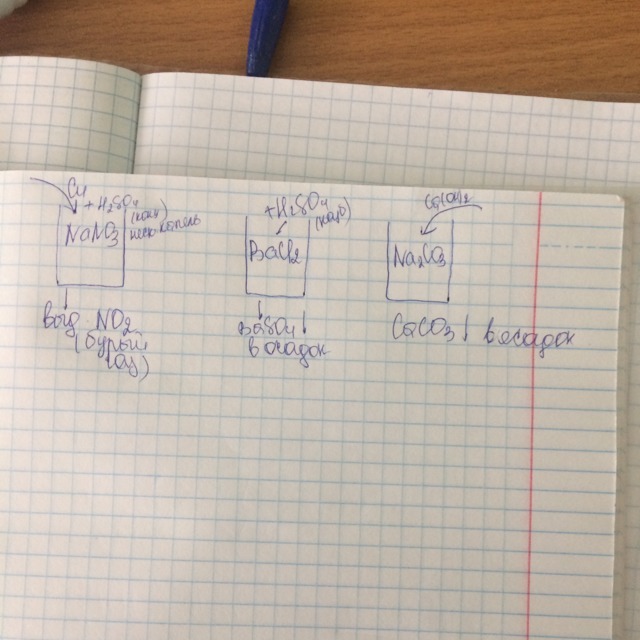 Cu
+ H₂SO₄ (конц)
NaNO₃
несколько капель
выд NO₂
(бурый
газ)
+H₂SO₄
BaCl₂
BaSO₄↓
в осадок
Ca(OH)₂
Na₂CO₃
CaCO₃↓ в осадок